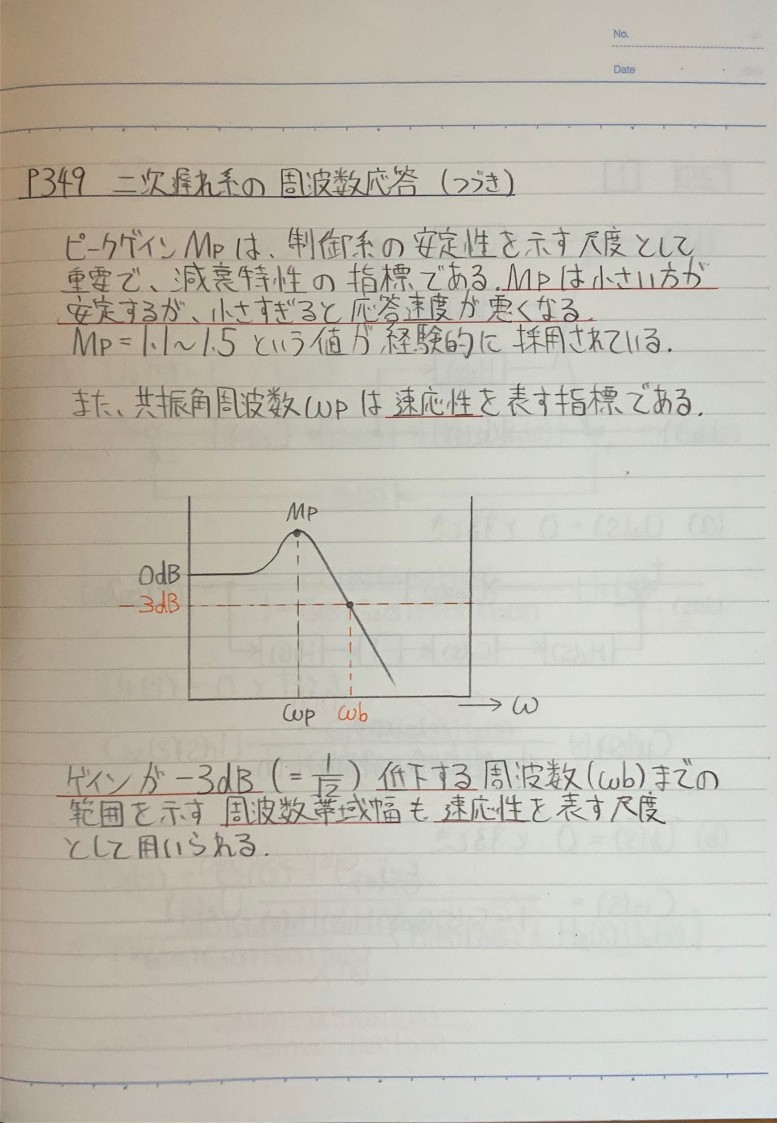 No.
Date
P349 二次遅れ系の周波数応答 (つづき)
ピークゲイン Mp は、制御系の安定性を示す尺度として
重要で、減衰特性の指標である. Mp は小さい方が
安定するが、小さすぎると応答速度が悪くなる.
Mp = 1.1～1.5 という値が経験的に採用されている.
また、共振角周波数 ωp は速応性を表す指標である.
Mp
0dB
-3dB
ωp ωb → ω
ゲインが -3dB (= 1/√2) 低下する周波数 (ωb) までの
範囲を示す周波数帯域幅も速応性を表す尺度
として用いられる.